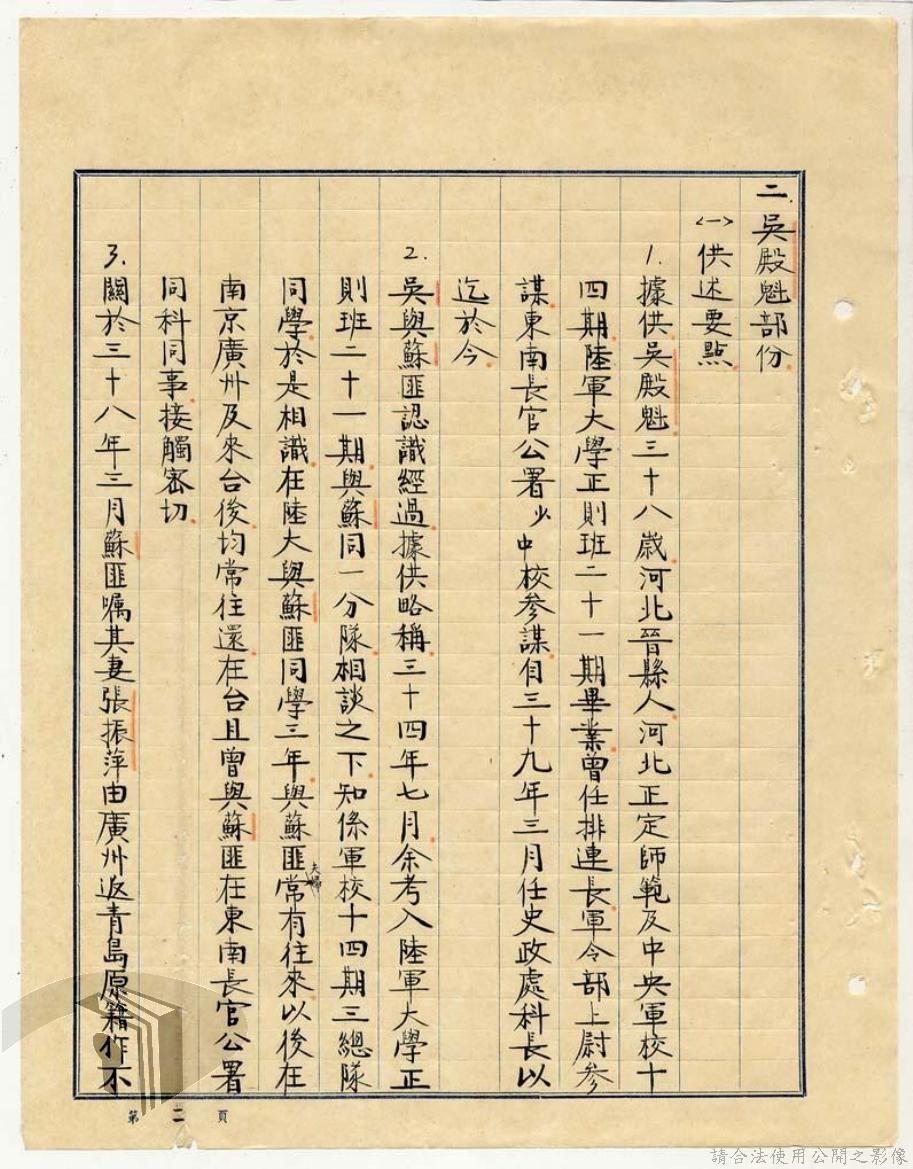 二.吳殿魁部份
<一>供述要點
1.據供吳殿魁三十八歲河北晉縣人河北正定師範及中央軍校十
四期陸軍大學正則班二十一期畢業曾任排連長軍令部上尉參
謀東南長官公署少中校參謀自三十九年三月任史政處科長以
迄於今
2.吳與蘇匪認識經過據供略稱三十四年七月余考入陸軍大學正
則班二十一期與蘇同一分隊相談之下知係軍校十四期三總隊
同學於是相識在陸大與蘇匪同學三年與蘇匪夫婦常有往來以後在
南京廣州及來台後均常往還在台且曾與蘇匪在東南長官公署
同科同事接觸密切
3.關於三十八年三月蘇匪嘱其妻張振萍由廣州返青島原籍作不
第二頁
請合法使用公開之影像